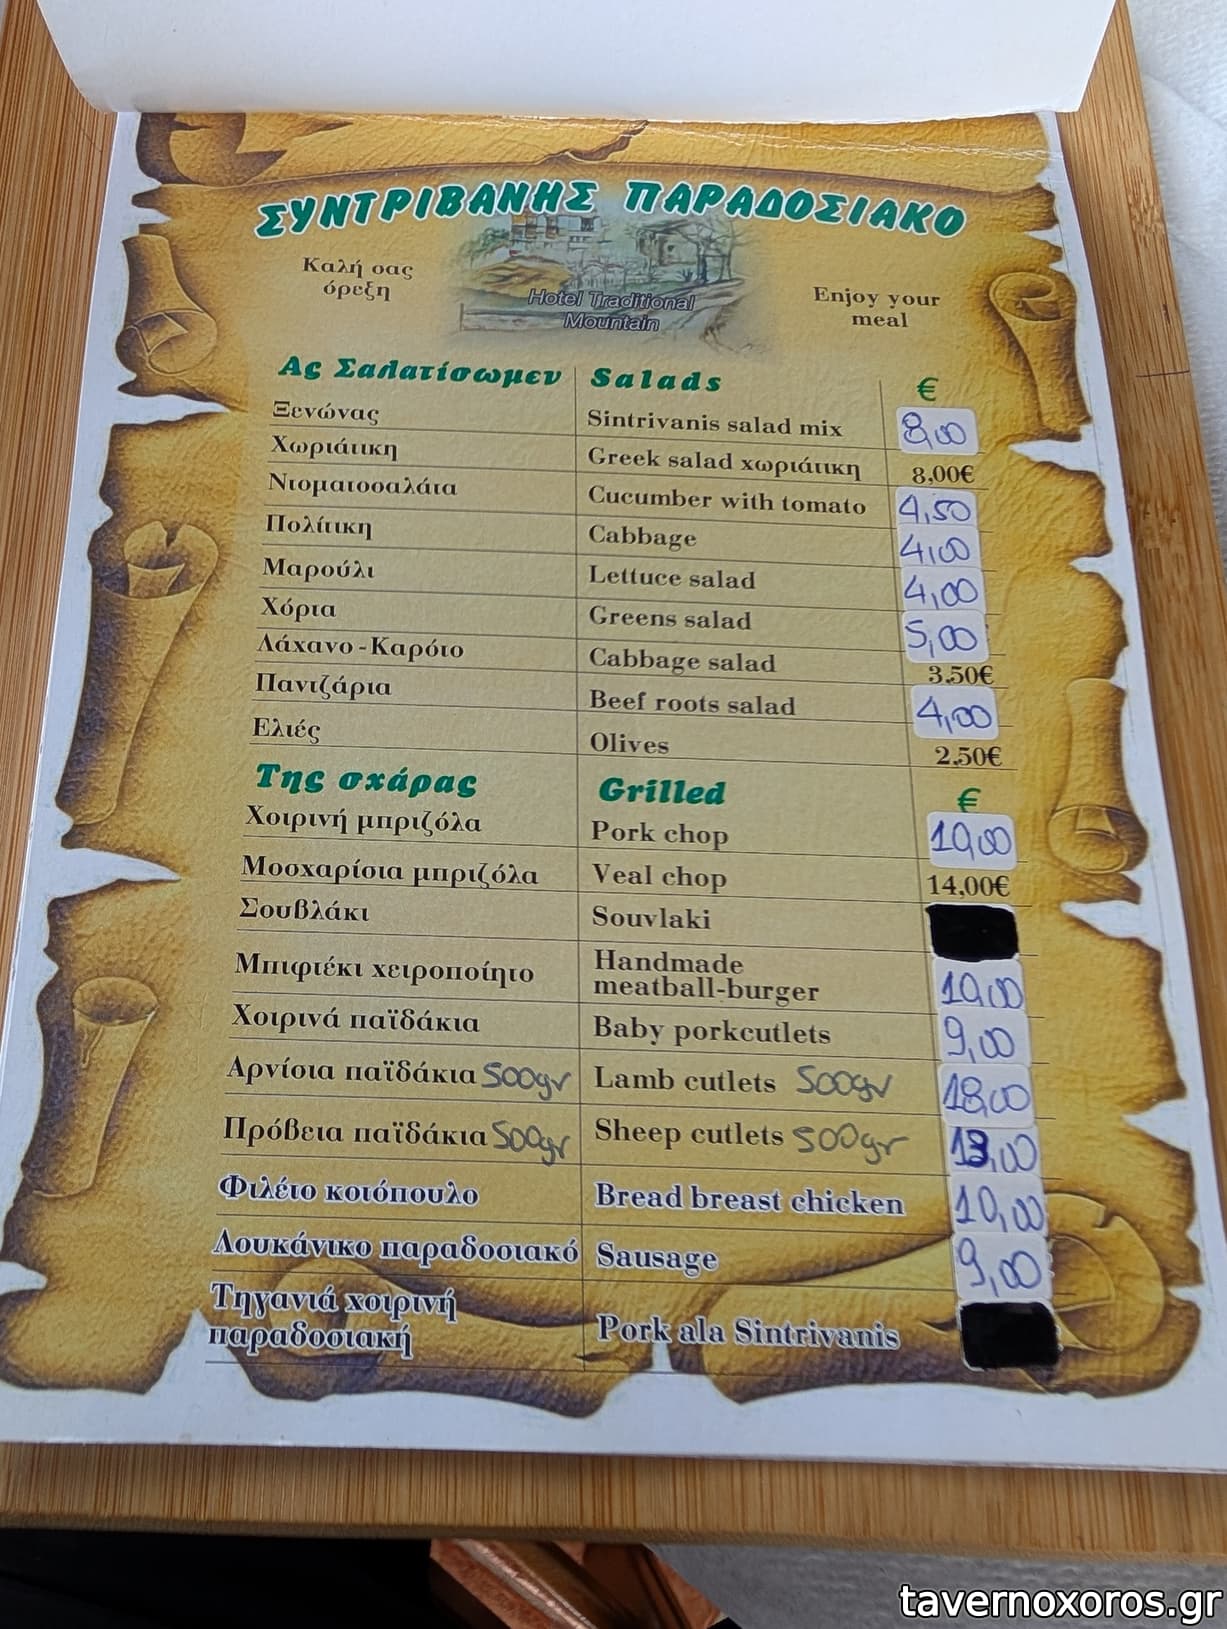 ΣΥΝΤΡΙΒΑΝΗΣ ΠΑΡΑΔΟΣΙΑΚΟ
Καλή σας
όρεξη
Hotel Traditional
Mountain
Enjoy your
meal
Ας Σαλατίσωμεν Salads €
Ξενώνας Sintrivanis salad mix 8,00
Χωριάτικη Greek salad χωριάτικη 8,00€
Ντοματοσαλάτα Cucumber with tomato 4,50
Πολίτικη Cabbage 4,00
Μαρούλι Lettuce salad 4,00
Χόρτα Greens salad 5,00
Λάχανο - Καρότο Cabbage salad 3.50€
Παντζάρια Beef roots salad 4,00
Ελιές Olives 2.50€
Της σχάρας Grilled €
Χοιρινή μπριζόλα Pork chop 10,00
Μοσχαρίσια μπριζόλα Veal chop 14,00€
Σουβλάκι Souvlaki
Μπιφτέκι χειροποίητο Handmade
meatball-burger 10,00
Χοιρινά παϊδάκια Baby porkcutlets 9,00
Αρνίσια παϊδάκια 500gr Lamb cutlets 500gr 18,00
Πρόβεια παϊδάκια 500gr Sheep cutlets 500gr 13,00
Φιλέτο κοτόπουλο Bread breast chicken 10,00
Λουκάνικο παραδοσιακό Sausage 9,00
Τηγανιά χοιρινή
παραδοσιακή Pork ala Sintrivanis
tavernoxoros.gr